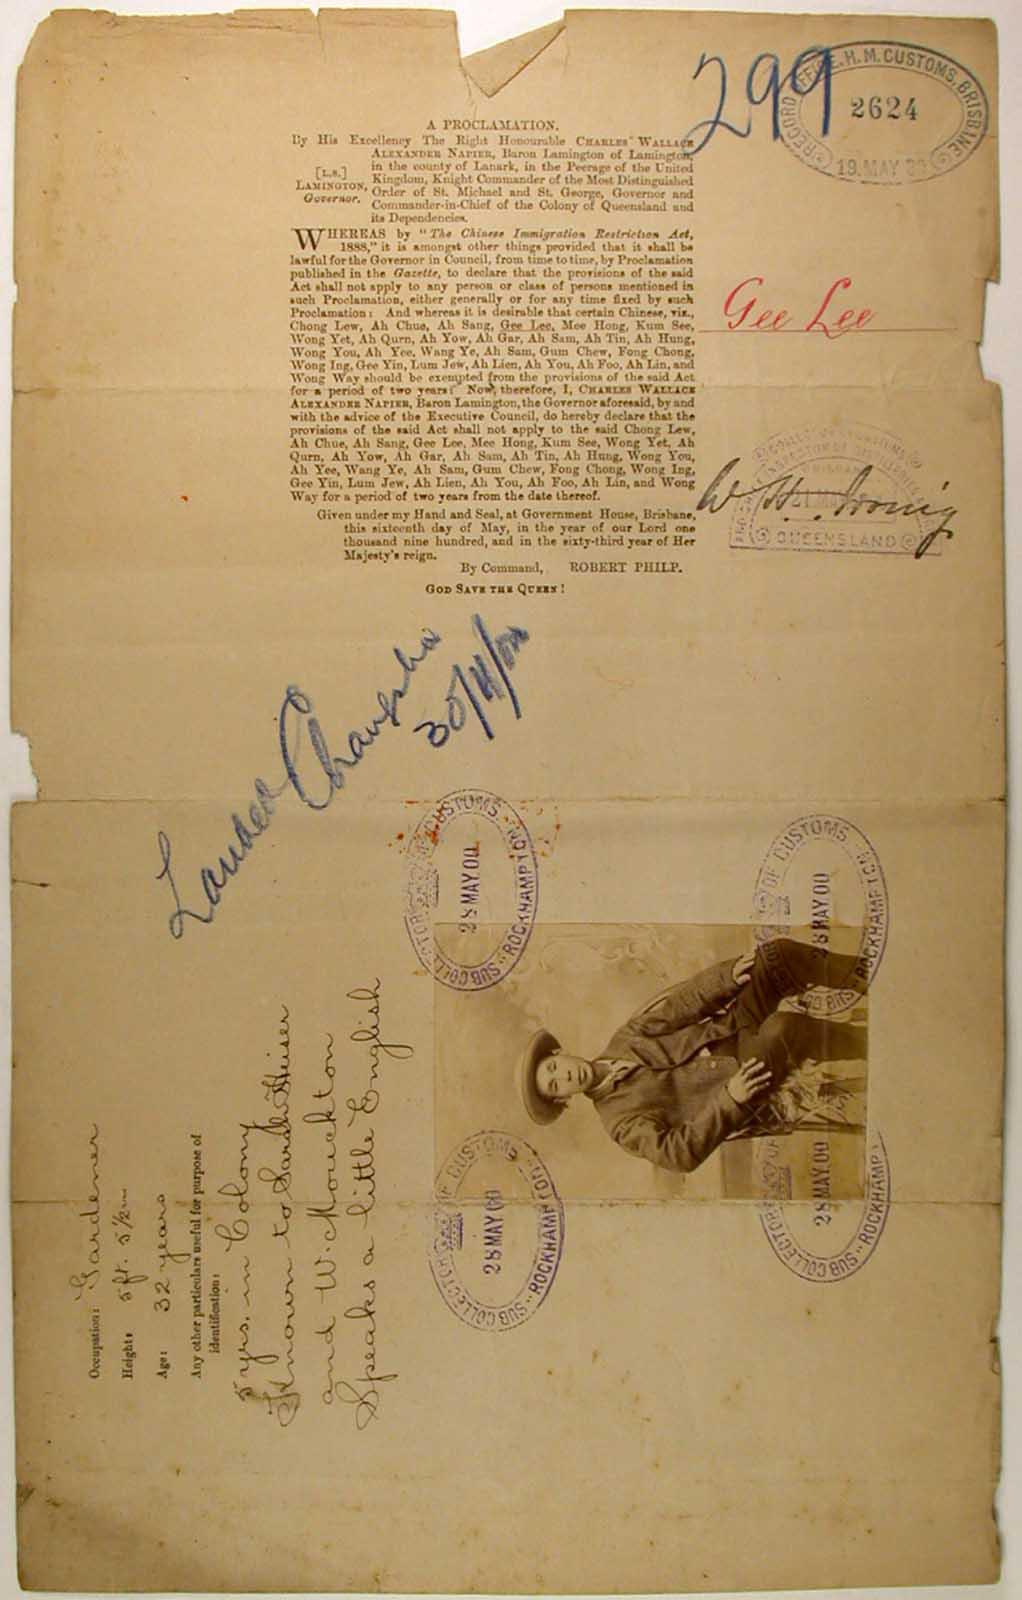 299
RECORD OFFICE, H. M. CUSTOMS, BRISBANE
2624
19. MAY
A PROCLAMATION.
By His Excellency The Right Honourable CHARLES WALLACE
ALEXANDER NAPIER, Baron Lamington of Lamington,
in the county of Lanark, in the Peerage of the United
Kingdom, Knight Commander of the Most Distinguished
Order of St. Michael and St. George, Governor and
Commander-in-Chief of the Colony of Queensland and
its Dependencies.
[L.S.]
LAMINGTON,
Governor.
WHEREAS by "The Chinese Immigration Restriction Act,
1888," it is amongst other things provided that it shall be
lawful for the Governor in Council, from time to time, by Proclamation
published in the Gazette, to declare that the provisions of the said
Act shall not apply to any person or class of persons mentioned in
such Proclamation, either generally or for any time fixed by such
Proclamation: And whereas it is desirable that certain Chinese, viz.,
Chong Lew, Ah Chue, Ah Sang, Gee Lee, Mee Hong, Kum See,
Wong Yet, Ah Qurn, Ah Yow, Ah Gar, Ah Sam, Ah Tin, Ah Hung,
Wong You, Ah Yee, Wang Ye, Ah Sam, Gum Chew, Fong Chong,
Wong Ing, Gee Yin, Lum Jew, Ah Lien, Ah You, Ah Foo, Ah Lin, and
Wong Way should be exempted from the provisions of the said Act
for a period of two years: Now, therefore, I, CHARLES WALLACE
ALEXANDER NAPIER, Baron Lamington, the Governor aforesaid, by and
with the advice of the Executive Council, do hereby declare that the
provisions of the said Act shall not apply to the said Chong Lew,
Ah Chue, Ah Sang, Gee Lee, Mee Hong, Kum See, Wong Yet, Ah
Qurn, Ah Yow, Ah Gar, Ah Sam, Ah Tin, Ah Hung, Wong You,
Ah Yee, Wang Ye, Ah Sam, Gum Chew, Fong Chong, Wong Ing,
Gee Yin, Lum Jew, Ah Lien, Ah You, Ah Foo, Ah Lin, and Wong
Way for a period of two years from the date thereof.
Given under my Hand and Seal, at Government House, Brisbane,
this sixteenth day of May, in the year of our Lord one
thousand nine hundred, and in the sixty-third year of Her
Majesty's reign.
By Command, ROBERT PHILP.
GOD SAVE THE QUEEN!
Gee Lee
QUEENSLAND
W. H. Irving
Landed
Changsha
30/11/00
Occupation: Gardener
Height: 5 ft. 5 1/2 in
Age: 32 years
Any other particulars useful for purpose of
identification:
5 yrs. in Colony
Known to Sarah
and W. Mouckton
Speaks a little English
SUB COLLECTOR OF CUSTOMS. NO
28 MAY 00
ROCKHAMPTON
SUB COLLECTOR OF CUSTOMS. NO
28 MAY 00
ROCKHAMPTON
OF CUSTOMS. NO
28 MAY 00
ROCKHAMPTON
SUB COLLECTOR OF
28 MAY 00
ROCKHAMP